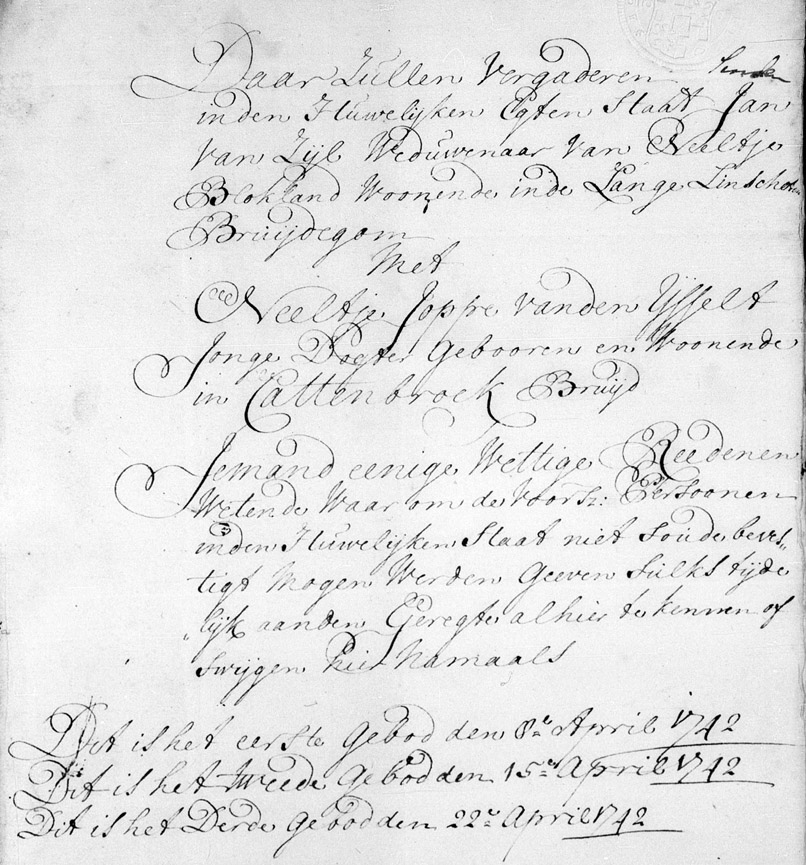 Daar Zullen Vergaderen
inden Huwelijken Egten Staat Jan
van Zijl Weduwenaar van Neeltje
Blokland Woonende inde Lange Linschoten
Bruijdegom
Met
Neeltje Joppe vanden Ijsselt
Jonge Dogter Gebooren en Woonende
in Cattenbroek Bruijd
Jemand eenige Wettige Reedenen
Wetende Waar om de voorsz: Persoonen
inden Huwelijken Staat niet soude beves„
tigt Mogen Werden Geeven sulks tijde
„lijk aanden Geregte alhier te kennen of
swijgen hier Namaals
Dit is het eerste Gebod den 8e April 1742
Dit is het tweede Gebod den 15e April 1742
Dit is het Derde Gebod den 22e April 1742